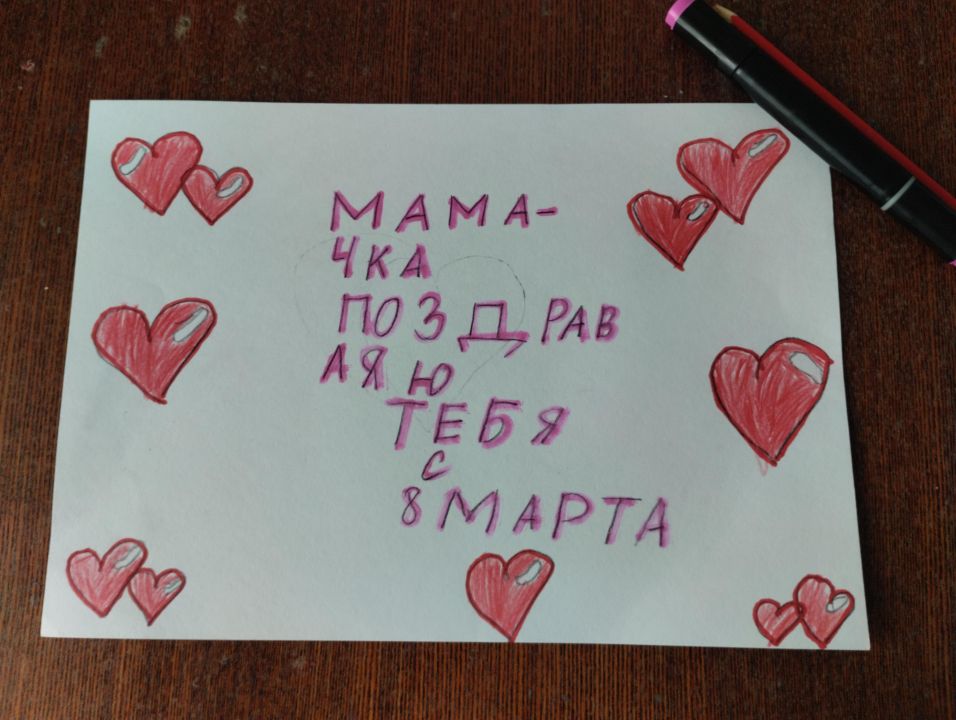 МАМА-
ЧКА
ПОЗДРАВ
АЯЮ
ТЕБЯ
С
8 МАРТА